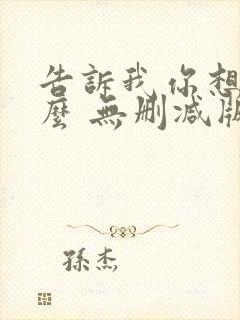 告訴我 你想
麼 無刪減版
孫杰